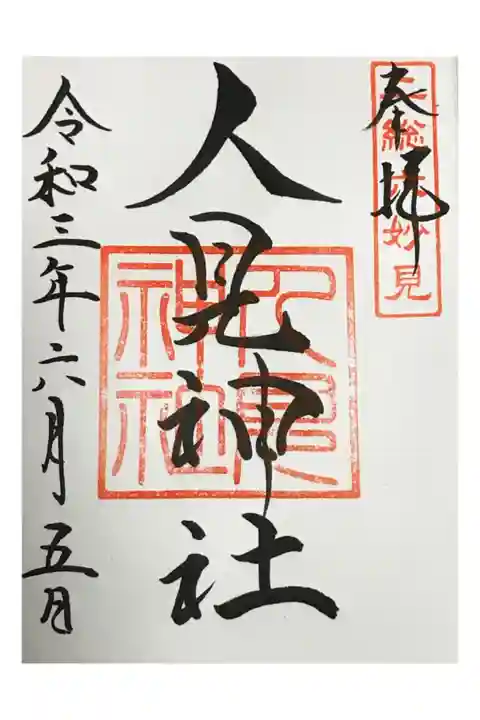 奉拝
上総大妙見
人見神社
人見神社
令和三年六月五日